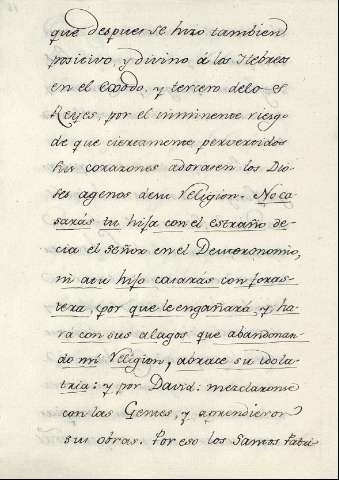 que despues se hizo tambien
positivo, y divino á los Hebreos
en el exodo, y tercero delos
Reyes, por el imminente riesgo
de que ciertamente pervertidos
sus corazones adorasen los Dio-
ses agenos desu Religion. No ca-
sarás tu hija con el estraño de-
cia el señor en el Deuteronomio,
ni atu hijo casarás con foras-
tera, por que le engañará, y ha-
rá con sus alagos que abandonan-
do mi Religion, abrace su idola-
tria: y por David: mezclaronse
con las Gentes, y aprendieron
sus obras. Por eso los Santos Padre